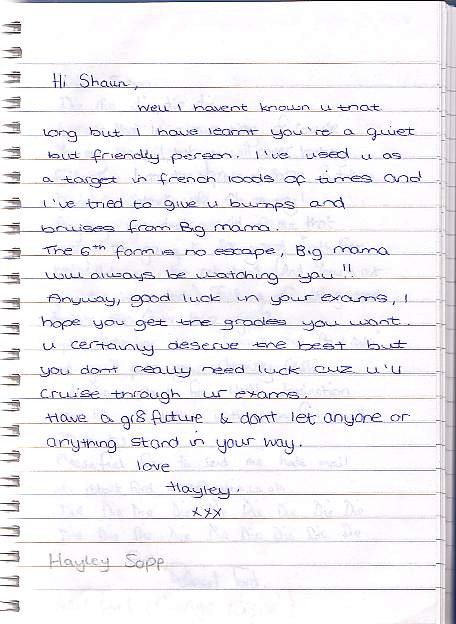 Hi Shaun,
Well I havent known u that
long but I have learnt you're a quiet
but friendly person. I've used u as
a target in french loads of times and
I've tried to give u bumps and
bruises from Big mama.
The 6th form is no escape, Big mama
will always be watching you!!
Anyway, good luck in your exams, I
hope you get the grades you want.
u certainly deserve the best but
you dont really need luck cuz u'll
cruise through ur exams.
Have a gr8 future & dont let anyone or
anything stand in your way.
love
Hayley.
xxx
Hayley Sapp